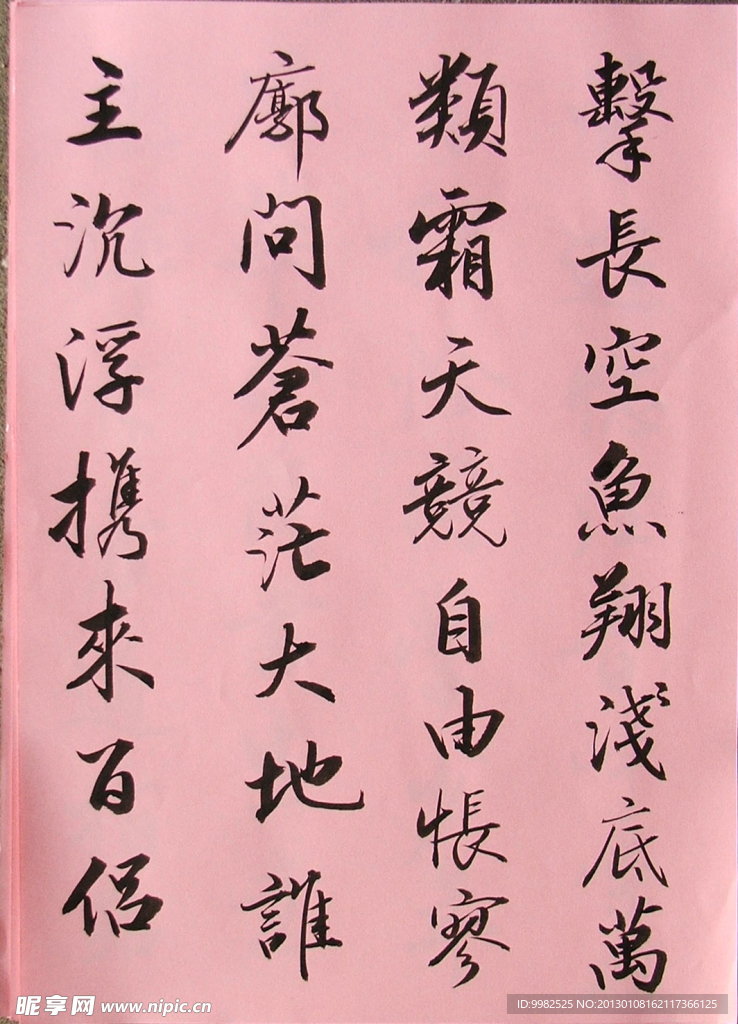 擊長空魚翔淺底萬
類霜天競自由悵寥
廓問蒼茫大地誰
主沉浮携來百侣
昵享网 www.nipic.cn
ID:9982525 NO:20130108162117366125